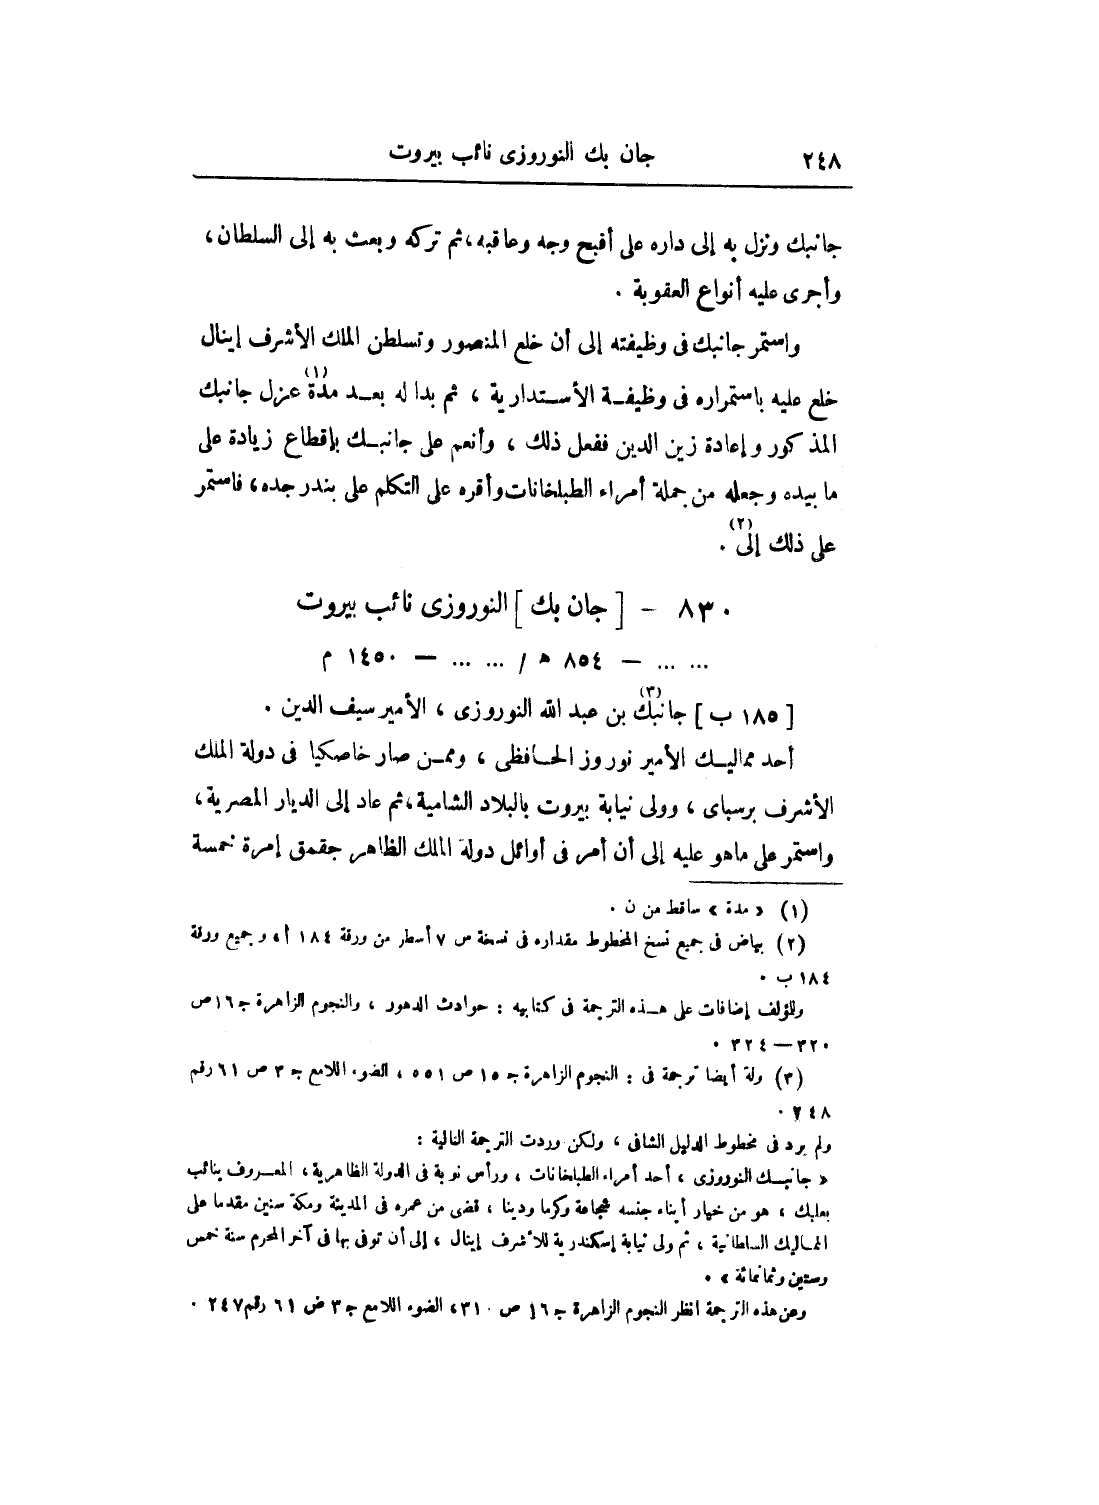 ٢٤٨ جان بك النوروزى نائب بيروت
جانبك ونزل به إلى داره على أقبح وجه وعاقبه، ثم تركه وبعث به إلى السلطان،
وأجرى عليه أنواع العقوبة .
واستمر جانبك فى وظيفته إلى أن خلع المنصور وتسلطن الملك الأشرف إينال
خلع عليه باستمراره فى وظيفة الأستدارية ، ثم بدا له بعد مدة(١) عزل جانبك
المذكور وإعادة زين الدين ففعل ذلك ، وأنعم على جانبك بإقطاع زيادة على
ما بيده وجعله من جملة أمراء الطبلخانات وأقره على التكلم على بندر جده، فاستمر
على ذلك إلى(٢) .
٨٣٠ - [ جان بك ] النوروزى نائب بيروت
... ... — ٨٥٤ ه / ... ... — ١٤٥٠ م
[ ١٨٥ ب ] جانبك(٣) بن عبد الله النوروزى ، الأمير سيف الدين .
أحد مماليك الأمير نوروز الحافظى ، وممن صار خاصكيا فى دولة الملك
الأشرف برسباى ، وولى نيابة بيروت بالبلاد الشامية، ثم عاد إلى الديار المصرية،
واستمر على ماهو عليه إلى أن أمر فى أوائل دولة الملك الظاهر جقمق إمرة خمسة
(١) « مدة » ساقط من ن .
(٢) بياض فى جميع نسخ المخطوط مقداره فى نسخة س ٧ أسطر من ورقة ١٨٤ أ، وجميع ورقة
١٨٤ ب .
وللمؤلف إضافات على هذه الترجمة فى كتابيه : حوادث الدهور ، والنجوم الزاهرة ج١٦ص
٣٢٠ — ٣٢٤ .
(٣) وله أيضا ترجمة فى : النجوم الزاهرة ج ١٥ ص ٥٥١ ، الضوء اللامع ج ٣ ص ٦١ رقم
٢٤٨ .
ولم يرد فى مخطوط الدليل الشافى ، ولكن وردت الترجمة التالية :
« جانبك النوروزى ، أحد أمراء الطبلخانات ، ورأس نوبة فى الدولة الظاهرية ، المعروف بنائب
بعلبك ، هو من خيار أبناء جنسه شجاعة وكرما ودينا ، قضى من عمره فى المدينة ومكة سنين مقدما على
المماليك السلطانية ، ثم ولى نيابة إسكندرية للأشرف إينال ، إلى أن توفى بها فى آخر المحرم سنة خمس
وستين وثمانمائة » .
وعن هذه الترجمة انظر النجوم الزاهرة ج ١٦ ص ٣١٠، الضوء اللامع ج ٣ ص ٦١ رقم٢٤٧ .